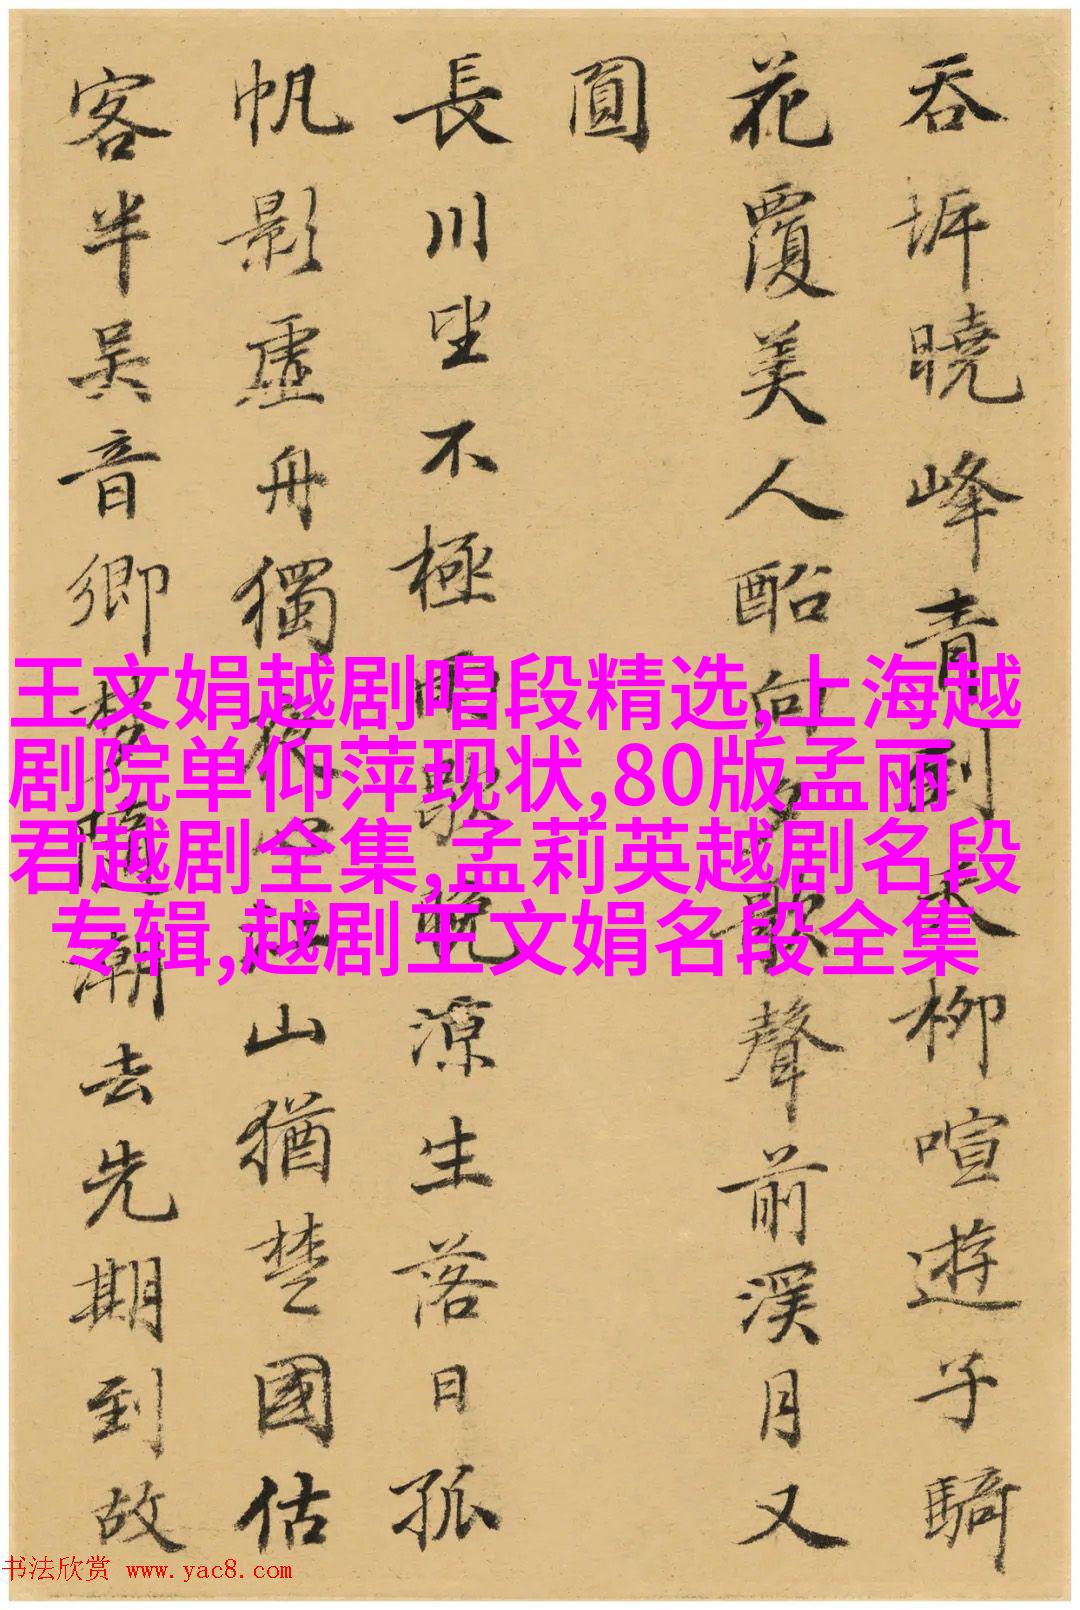 吞坼曉峰青柳喧遊子騎
花覆美人向夕歌聲前溪月又
圓
長川坐不極雨歇晚涼生落日孤
帆影虛舟獨夜心江山猶楚國估
客半吳音鄉夢隨潮去先期到故
王文娟越剧唱段精选,上海越
剧院单仰萍现状,80版孟丽
君越剧全集,孟莉英越剧名段
专辑,越剧王文娟名段全集
书法欣赏 www.yac8.com